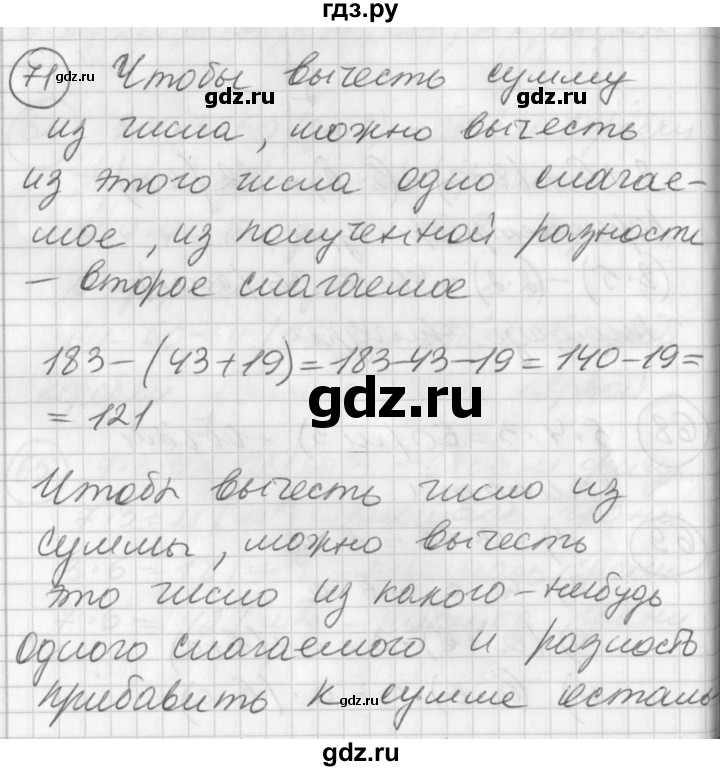 гдз.ру
71 Чтобы вычесть сумму
из числа, можно вычесть
из этого числа одно слагае-
мое, из полученной разности
– второе слагаемое
183-(43+19)=183-43-19=140-19=
=121
Чтобы вычесть число из
суммы, можно вычесть
это число из какого-нибудь
одного слагаемого и разность
прибавить к сумме осталь
gdz.ru
gdz.ru
gdz.ru
gdz.ru
gdz.ru
gdz.ru
gdz.ru
gdz.ru
gdz.ru
gdz.ru
gdz.ru
gdz.ru